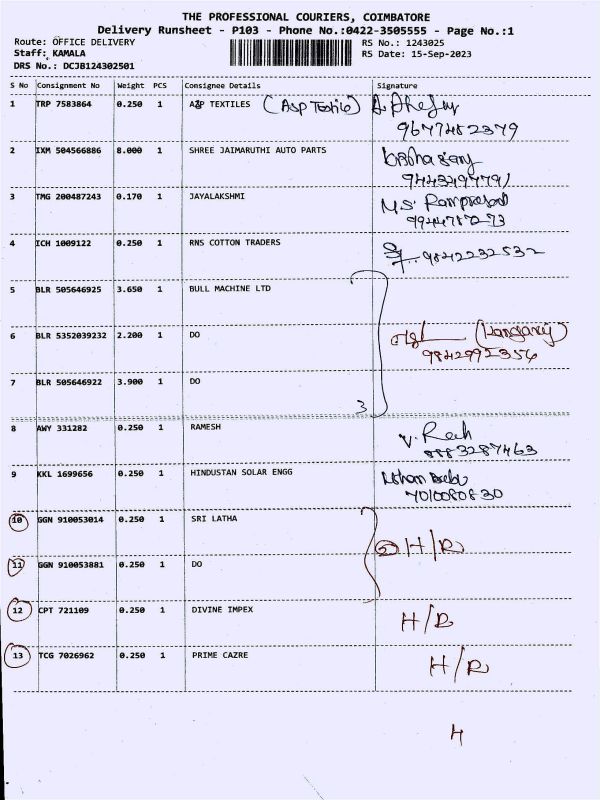 THE PROFESSIONAL COURIERS, COIMBATORE
Delivery Runsheet - P103 - Phone No.:0422-3505555 - Page No.:1
Route: OFFICE DELIVERY RS No.: 1243025
Staff: KAMALA RS Date: 15-Sep-2023
DRS No.: DCJB124302501
S No Consignment No Weight PCS Consignee Details Signature
1 TRP 7583864 0.250 1 TEXTILES (Asp Textile)
9677482379
2 IXM 504566886 8.000 1 SHREE JAIMARUTHI AUTO PARTS
3 TMG 200487243 0.170 1 JAYALAKSHMI M.S. Ramprasad
9944787273
4 ICH 1009122 0.250 1 RNS COTTON TRADERS 9842232532
5 BLR 505646925 3.650 1 BULL MACHINE LTD
6 BLR 5352039232 2.200 1 DO
9842992356
7 BLR 505646922 3.900 1 DO
3
8 AWY 331282 0.250 1 RAMESH
8883287463
9 KKL 1699656 0.250 1 HINDUSTAN SOLAR ENGG
7010080830
10 GGN 910053014 0.250 1 SRI LATHA
2 H/R
11 GGN 910053881 0.250 1 DO
12 CPT 721109 0.250 1 DIVINE IMPEX H/R
13 TCG 7026962 0.250 1 PRIME CAZRE H/R
4